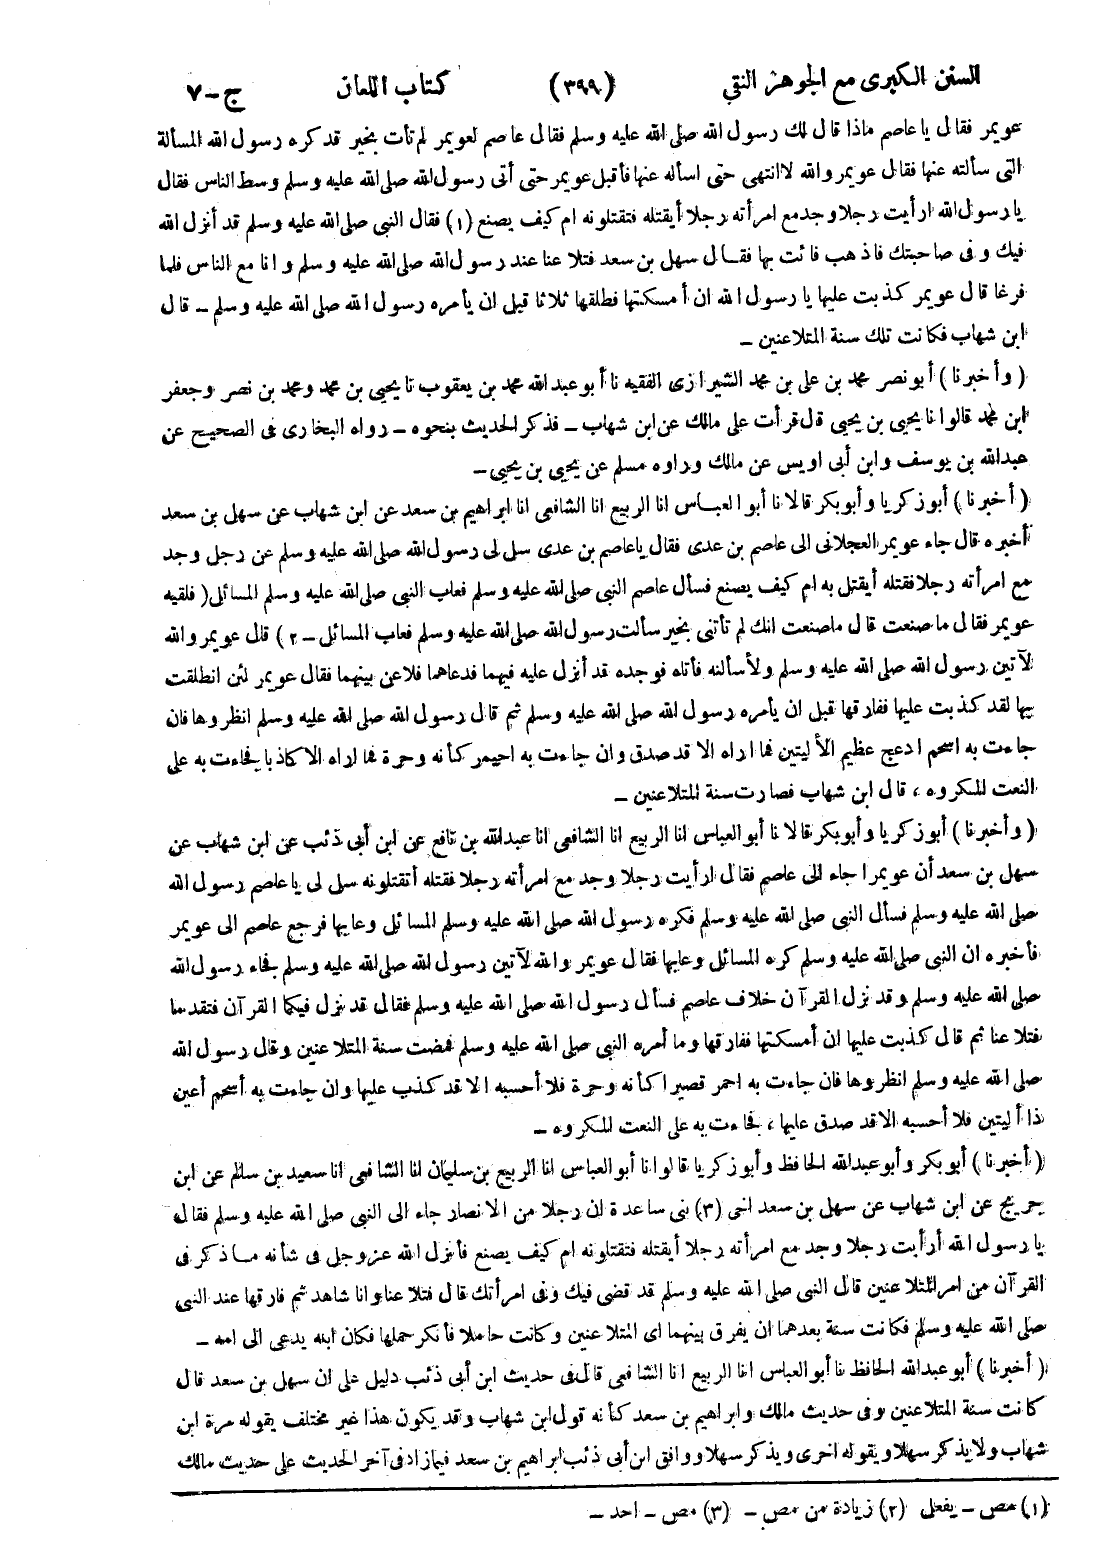 السنن الكبرى مع الجوهر النقي (٣٩٩) كتاب اللعان ج-٧
عويمر فقال يا عاصم ماذا قال لك رسول الله صلى الله عليه وسلم فقال عاصم لعويمر لم تأت بخير قد كره رسول الله المسألة
التى سألته عنها فقال عويمر والله لا انتهى حتى اسأله عنها فأقبل عويمر حتى أتى رسول الله صلى الله عليه وسلم وسط الناس فقال
يا رسول الله ارأيت رجلا وجد مع امرأته رجلا أيقتله فتقتلونه ام كيف يصنع (١) فقال النبى صلى الله عليه وسلم قد أنزل الله
فيك وفى صاحبتك فاذهب فائت بها فقال سهل بن سعد فتلاعنا عند رسول الله صلى الله عليه وسلم وانا مع الناس فلما
فرغا قال عويمر كذبت عليها يا رسول الله ان أمسكتها فطلقها ثلاثا قبل ان يأمره رسول الله صلى الله عليه وسلم - قال
ابن شهاب فكانت تلك سنة المتلاعنين -
(وأخبرنا) أبو نصر محمد بن على بن محمد الشيرازى الفقيه نا أبو عبدالله محمد بن يعقوب نا يحيى بن محمد ومحمد بن نصر وجعفر
ابن محمد قالوا نا يحيى بن يحيى قال قرأت على مالك عن ابن شهاب - فذكر الحديث بنحوه - رواه البخارى فى الصحيح عن
عبدالله بن يوسف وابن أبى اويس عن مالك وراوه مسلم عن يحيى بن يحيى -
(أخبرنا) أبو زكريا وأبو بكر قالا نا أبو العباس انا الربيع انا الشافعى انا ابراهيم بن سعد عن ابن شهاب عن سهل بن سعد
أخبره قال جاء عويمر العجلانى الى عاصم بن عدى فقال يا عاصم بن عدى سل لى رسول الله صلى الله عليه وسلم عن رجل وجد
مع امرأته رجلا فقتله أيقتل به ام كيف يصنع فسأل عاصم النبى صلى الله عليه وسلم فعاب النبى صلى الله عليه وسلم المسائل (فلقيه
عويمر فقال ما صنعت قال ما صنعت انك لم تأتنى بخير سألت رسول الله صلى الله عليه وسلم فعاب المسائل - ٢) قال عويمر والله
لآتين رسول الله صلى الله عليه وسلم ولأسألنه فأتاه فوجده قد أنزل عليه فيهما فدعاهما فلاعن بينهما فقال عويمر لئن انطلقت
بها لقد كذبت عليها ففارقها قبل ان يأمره رسول الله صلى الله عليه وسلم ثم قال رسول الله صلى الله عليه وسلم انظروها فان
جاءت به اسحم ادعج عظيم الأليتين فما اراه الا قد صدق وان جاءت به احيمر كأنه وحرة فما اراه الا كاذبا فجاءت به على
النعت المكروه ، قال ابن شهاب فصارت سنة المتلاعنين -
(وأخبرنا) أبو زكريا وأبو بكر قالا نا أبو العباس انا الربيع انا الشافعى انا عبدالله بن نافع عن ابن أبى ذئب عن ابن شهاب عن
سهل بن سعد أن عويمرا جاء الى عاصم فقال ارأيت رجلا وجد مع امرأته رجلا فقتله أتقتلونه سل لى يا عاصم رسول الله
صلى الله عليه وسلم فسأل النبى صلى الله عليه وسلم فكره رسول الله صلى الله عليه وسلم المسائل وعابها فرجع عاصم الى عويمر
فأخبره ان النبى صلى الله عليه وسلم كره المسائل وعابها فقال عويمر والله لآتين رسول الله صلى الله عليه وسلم فجاء رسول الله
صلى الله عليه وسلم وقد نزل القرآن خلاف عاصم فسأل رسول الله صلى الله عليه وسلم فقال قد نزل فيكما القرآن فتقدما
فتلاعنا ثم قال كذبت عليها ان أمسكتها ففارقها وما أمره النبى صلى الله عليه وسلم فمضت سنة المتلاعنين وقال رسول الله
صلى الله عليه وسلم انظروها فان جاءت به احمر قصيرا كأنه وحرة فلا أحسبه الا قد كذب عليها وان جاءت به أسحم أعين
ذا أليتين فلا أحسبه الا قد صدق عليها ، فجاءت به على النعت المكروه -
(أخبرنا) أبو بكر وأبو عبدالله الحافظ وأبو زكريا قالوا نا أبو العباس انا الربيع بن سليمان انا الشافعى انا سعيد بن سالم عن ابن
جريج عن ابن شهاب عن سهل بن سعد اخى (٣) بنى ساعدة ان رجلا من الانصار جاء الى النبى صلى الله عليه وسلم فقال
يا رسول الله أرأيت رجلا وجد مع امرأته رجلا أيقتله فتقتلونه ام كيف يصنع فأنزل الله عزوجل فى شأنه ما ذكر فى
القرآن من امر المتلاعنين قال النبى صلى الله عليه وسلم قد قضى فيك وفى امرأتك قال فتلاعنا وانا شاهد ثم فارقها عند النبى
صلى الله عليه وسلم فكانت سنة بعدهما ان يفرق بينهما اى المتلاعنين وكانت حاملا فأنكر حملها فكان ابنه يدعى الى امه -
(أخبرنا) أبو عبدالله الحافظ نا أبو العباس انا الربيع انا الشافعى قال فى حديث ابن أبى ذئب دليل على ان سهل بن سعد قال
كانت سنة المتلاعنين وفى حديث مالك وابراهيم بن سعد كأنه قول ابن شهاب وقد يكون هذا غير مختلف يقوله مرة ابن
شهاب ولا يذكر سهلا ويقوله اخرى ويذكر سهلا ووافق ابن أبى ذئب ابراهيم بن سعد فيما زاد فى آخر الحديث على حديث مالك
(١) مص - يفعل (٢) زيادة من مص - (٣) مص - احد -